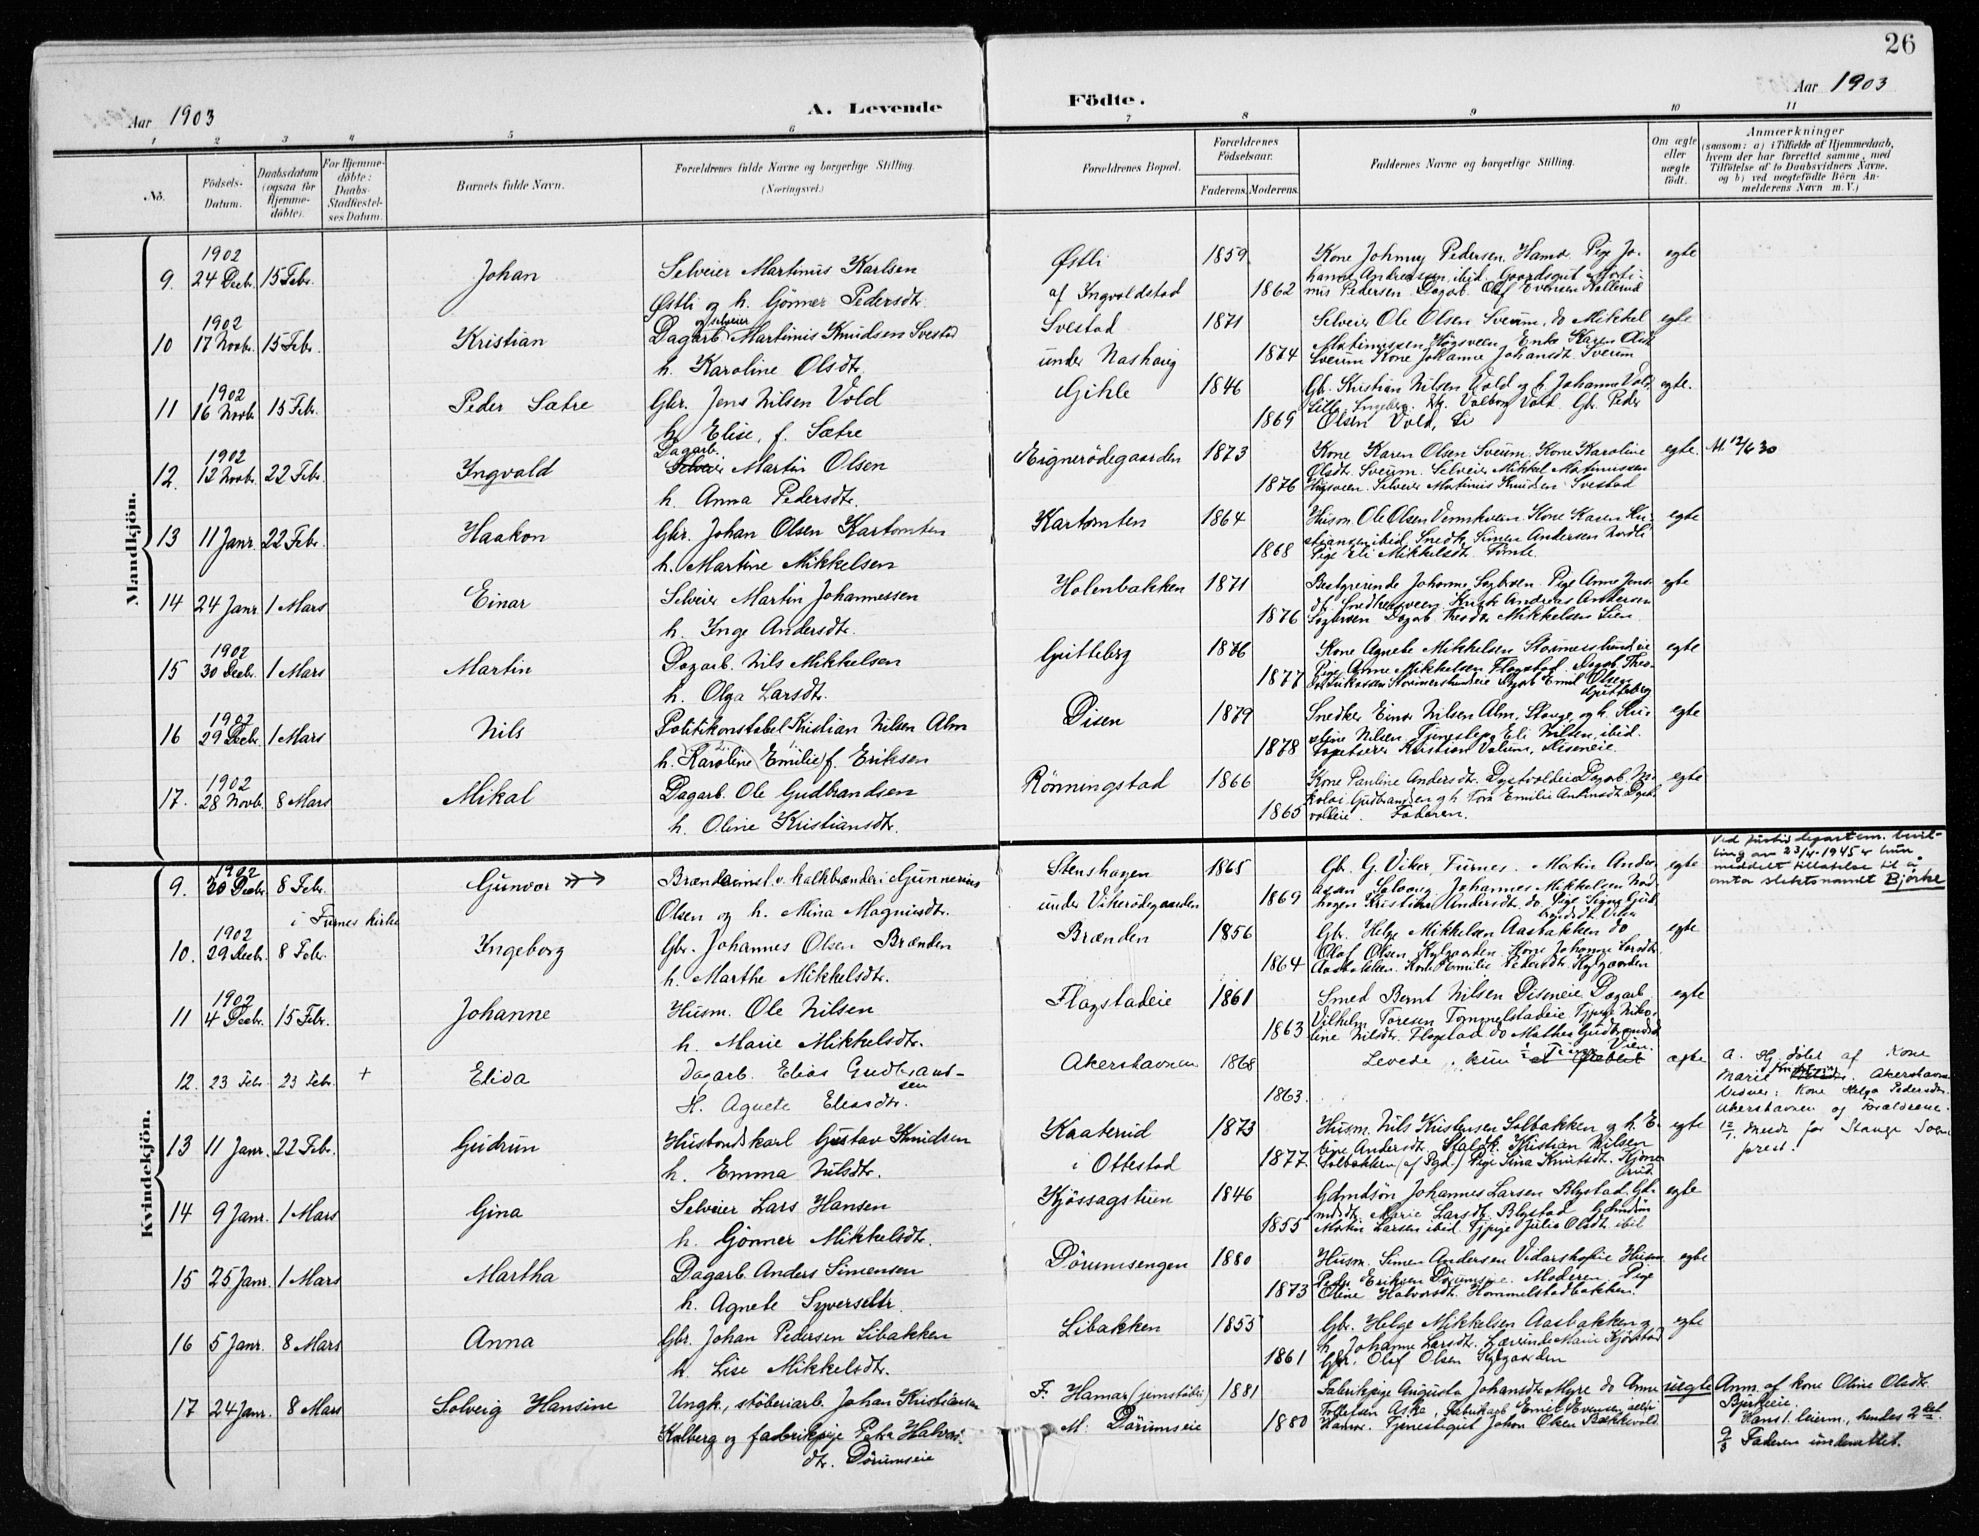 26
Aar 1903
A. Levende
Födte.
Aar 1903
1 2 3 4 5 6 7 8 9 10 11
No.
Födsels-Datum.
Daabsdatum (ogsaa for Hjemmedöbte).
For Hjemmedöbte: Daabs-Stadfæstelses Datum.
Barnets fulde Navn.
Forældrenes fulde Navne og borgerlige Stilling.
(Næringsvei.)
Forældrenes Bopæl.
Forældrenes Födselsaar.
Faderens. Moderens.
Faddernes Navne og borgerlige Stilling.
Om ægte eller uægte födt.
Anmærkninger
(saasom: a) i Tilfælde af Hjemmedaab, hvem der har forrettet samme, med Tilföielse af to Daabsvidners Navne, og b) ved uægtefödte Börn Anmelderens Navn m. V.)
Mandkjön.
9. 1902 24 Decb. 15 Febr. Johan
Selveier Martinus Karlsen
Østli og h. Gönner Pedersdtr.
Østli
af Ingvoldstad
1859 1862
Kone Johnny Pedersen, Hamar. Pige Jo-
hanne Andreassen ibid. Gaardsgut Marti-
nus Pedersen. Dagarb. Olaf Evensen Kallerud
egte
10 1902 17 Novb. 15 Febr. Kristian
og selveier
Dagarb. Martinus Knudsen Svestad
h. Karoline Olsdtr.
Svestad
under Nashaug
1871 1874
Selveier Ole Olsen Sveum, do Mikkel
Martinussen Högsveen, Enke Karen Ols.
Sveum Kone Johanne Johansdtr. Sveum
egte
11 1902 16 Novb. 15 Febr. Peder Sætre
Gbr. Jens Nilsen Vold
h. Elise, f. Sætre
Gihle
1846 1869
Gbr. Kristian Nilsen Vold og h. Johanne Vold
Valborg Vold. Gbr. Peder
Olsen Vold, Li
egte.
12. 1902 12 Novb. 22 Febr. Ingvald
Dagarb.
Selveier Martin Olsen
h. Anna Pedersdtr.
Eignerödegaarden
1873 1876
Kone Karen Olsen Sveum. Kone Karoline
Olsdtr. Sveum. Selveier Mikkel Martinussen
Högsveen. Selveier Martinus Knudsen Svestad
egte. At 12/6 30
13 11 Janr. 22 Febr. Haakon
Gbr. Johan Olsen Kartomten
h. Martine Mikkelsen
Kartomten
1864 1868
Husm. Ole Olsen Kone Karen Kri-
stiansen ibid. Snedk. Simen Andersen Nordli
Pige Eli Mikkelsdtr. Tomte
egte
14 24 Janr. 1 Mars Einar
Selveier Martin Johannessen
h. Inge Andersdtr.
Holenbakken
1871 1876
Bestyrerinde Johanne Pige Anne Jens-
dtr. Snedkersveen. Andreas Andersen
Dagarb. Theodor Mikkelsen Lien
egte
15 1902 30 Decb. 1 Mars Martin
Dagarb. Nils Mikkelsen
h. Olga Larsdtr.
Gutteberg
1876 1877
Kone Agnete Mikkelsen
Pige Anne Mikkelsen Flagstad. Dagarb. Theo-
Dagarb Emil Olsen
Gutteberg
egte
16 1902 29 Decb. 1 Mars Nils
Politikonstabel Kristian Nilsen Alm
h. Karoline (Emilie) f. Eriksen
Disen
1879 1878
Snedker Einar Nilsen Alm, Stange, og h. Kri-
stine Nilsen, Tjenestepg. Eli Nilsen ibid.
Tapetserer Kristian Volum, Diseneie
egte
17. 1902 28 Novb. 8 Mars Mikal
Dagarb. Ole Gudbrandsen
h. Oline Kristiansdtr.
Rönningstad
1866 1865
Kone Pauline Andersdtr. Dystvoldeie Dagarb. Ni-
kolai Gudbrandsen og h. Tora Emilie Dyst-
voldeie. Faderen.
egte
Kvindekjön.
9. 1902 20 Decb. 8 Febr. Gunvor
i Furnes kirke
v. kalkbrænderi Gunnerius
Olsen og h. Mina Magnusdtr.
Stenshagen
under Vikerödegaarden
1865 1869
Gbr. G. Viker, Furnes. Martin Ander-
Johannes Mikkelsen Nod-
hagen Kristine Andersdtr. do. Pige Signe Gul-
brandsdtr. Viker
egte
Ved justisdepartem. bevil-
ling av 23/4-1945 er hun
meddelt tillatelse til å
anta slektsnamnet Bjørke
10. 1902 29 Decb. 8 Febr. Ingeborg
Gbr. Johannes Olsen Brænden
h. Marthe Mikkelsdtr.
Brænden
1856 1864
Gbr. Helge Mikkelsen Aasbakken do
Olaf Olsen Kylgaarden. Kone Johanne Larsdtr.
Aasbakken. Kone Emilie Pedersdtr. Kylgaarden
egte
11 1902 4 Decb. 15 Febr. Johanne
Husm. Ole Nilsen
h. Marie Mikkelsdtr.
Flagstadeie
1861 1863
Smed Bernt Nilsen Diseneie. Dagarb.
Vilhelm Toresen Tommelstadeie Tjpige Niko-
line Nilsdtr. Flagstad do Mathea Gudbrandsd.
Vien.
egte
12. 23 Febr. 23 Febr. + Elida
Dagarb. Elias Gudbrand-
sen
H. Agnete Eliasdtr.
Akershavnen
1868 1863.
Levede kun 1 Time
ægte
a. Hj. döbt af Kone
Marie Akershavnen
Vidner: Kone Helga Pedersdtr.
Akershavnen og Forældrene.
Medd. for Stange Sogne-
prest.
13 11 Janr. 22 Febr. Gudrun
Husbondskarl Gustav Knudsen
h. Emma Nilsdtr.
Kaaterud
i Ottestad
1873 1877.
Husm. Nils Kristensen Solbakken og h. E-
line Andersdtr. Staldk. Kristian Nilsen
Solbakken (af Rgd.) Pige Lina Knutsdtr. Kjone-
rud.
egte
14 9 Janr. 1 Mars Gina
Selveier Lars Hansen
h. Gönner Mikkelsdtr.
Kjössagstuen
1846 1855
Gdmdsön Johannes Larsen Blystad. Gd-
mdsdtr. Marie Larsdtr. Blystad Gdmdsön
Martin Larsen ibid. Tjpige Julia Olsdtr. ibid
egte
15 25 Janr. 1 Mars Martha
Dagarb. Anders Simensen
h. Agnete Syversdtr.
Dörumsengen
1880 1873
Husm. Simen Andersen Vidarshofeie Husm
Peder Eriksen Dörumseie. Moderen. Pige
Oline Halvorsdtr. Hommelstadbakken.
egte
16 5 Janr. 8 Mars Anna
Gbr. Johan Pedersen Libakken
h. Lise Mikkelsdtr.
Libakken
1855 1861
Gbr. Helge Mikkelsen Aasbakken og
h. Johanne Larsdtr. Lærerinde Marie Kjöstad
Gbr. Olaf Olsen Kylgaarden
egte
17 24 Janr. 8 Mars Solveig Hansine
Ungk., stöberiarb. Johan Kristiansen
Kalberg og fabrikpige Petra Halvors-
dtr. Dörumseie
F. Hamar (jernstöberi)
M. Dörumseie
1881 1880
Fabrikpige Augusta Johansdtr. Myre do Anne
Tollefsen Aske, Fabrikarb. Emil Evensen, alle
Hamar. Tjenestegut Johan Olsen Bækkevold
uegte
Anm. af kone Oline Olsdtr.
Bjerkeie.
Hans 1. leierm., hendes 2det.
9/3 Faderen underrettet.